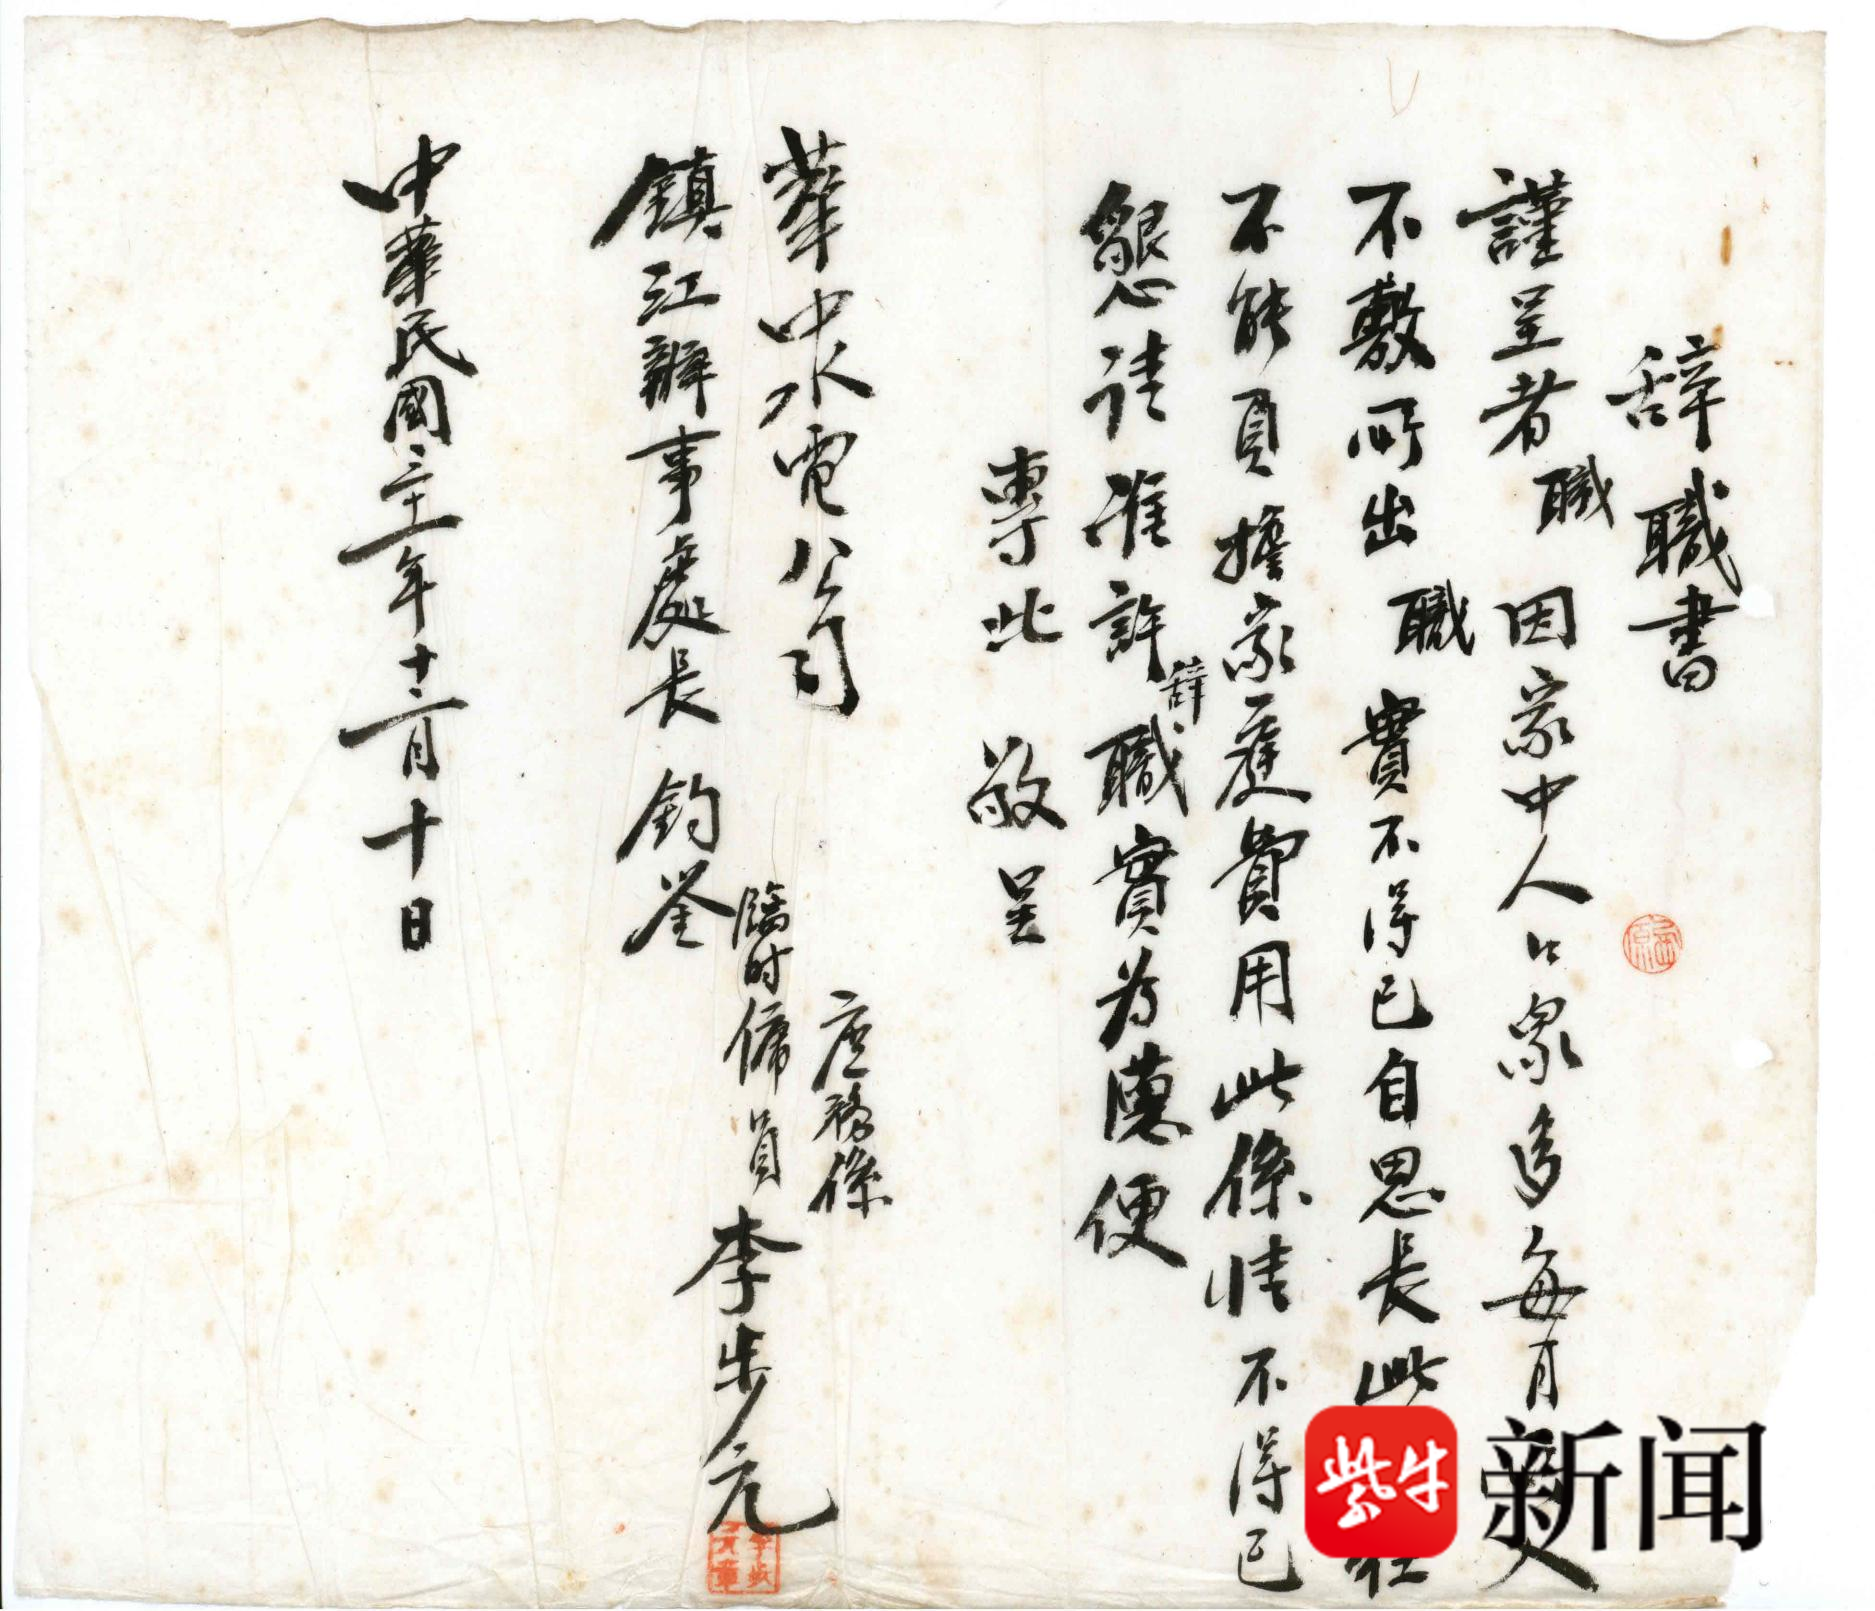 辞職書
謹呈者職因家中人口眾多每月入
不敷所出職實不得已自思長此
不能負擔家庭費用此係情不得已
懇請准許辞職實为德便
專此敬呈
華中水電公司
鎮江辦事處長鈞鉴
庶務係
臨时傭員李步元
中華民國三十一年十二月十日
紫牛新闻